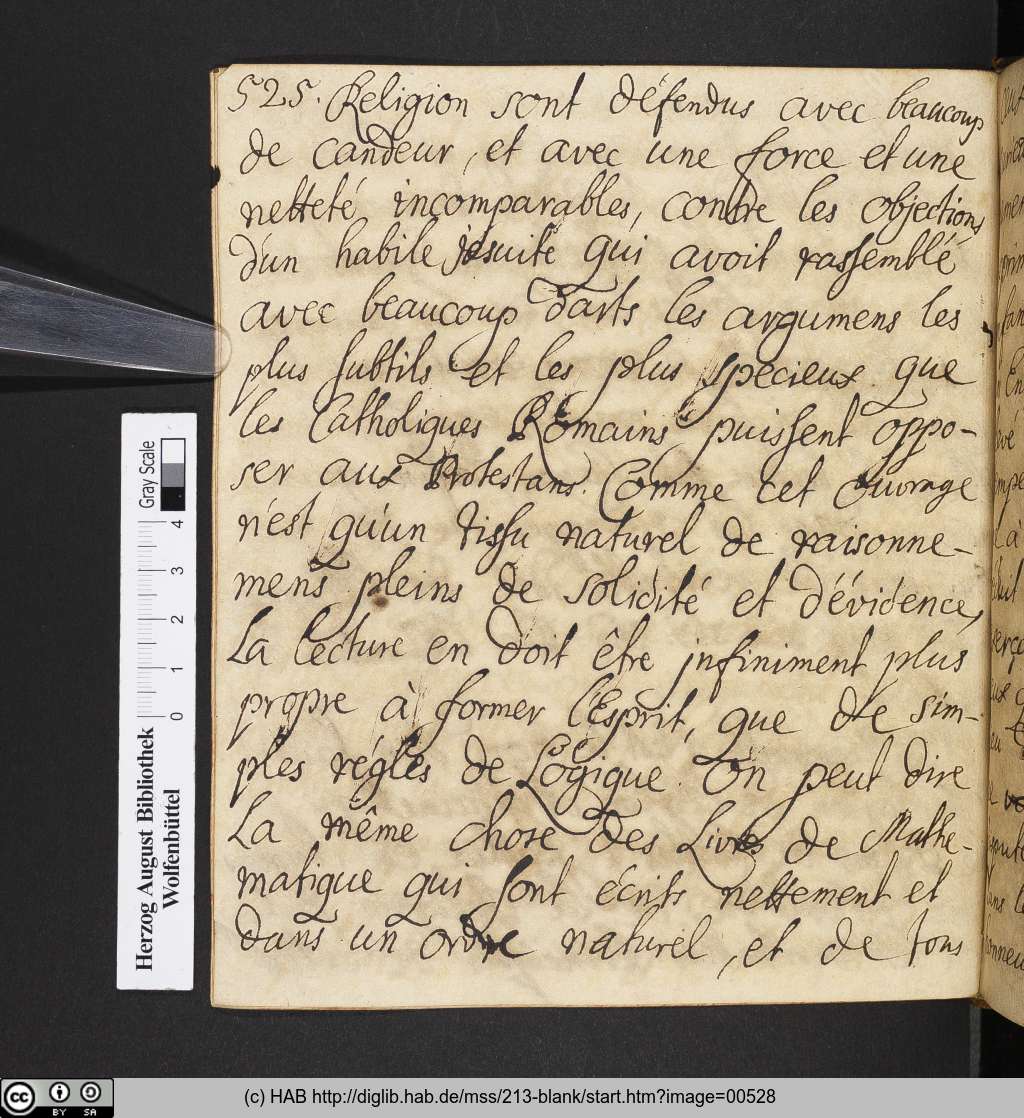 525. Religion sont défendus avec beaucoup
de candeur, et avec une force et une
netteté incomparables, contre les objections
d'un habile jésuite qui avoit rassemblé
avec beaucoup d'arts les argumens les
plus subtils et les plus specieux que
les Catholiques Romains puissent oppo-
ser aux Protestans. Comme cet Ouvrage
n'est qu'un tissu naturel de raisonne-
mens pleins de solidité et d'évidence,
La lecture en doit être infiniment plus
propre à former l'Esprit, que de sim-
ples régles de Logique. On peut dire
La même chose des Livres de Mathe-
matique qui sont écrits nettement et
dans un ordre naturel, et de tous
Gray Scale
4
3
2
1
0
Herzog August Bibliothek
Wolfenbüttel
cc
BY SA
(c) HAB http://diglib.hab.de/mss/213-blank/start.htm?image=00528